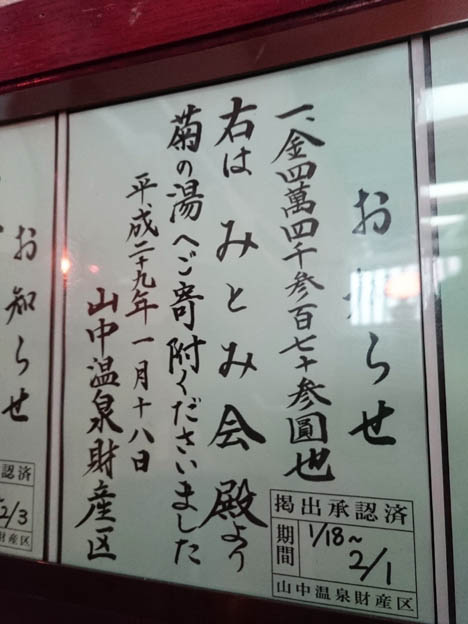 お知らせ
一、金四萬四千参百七十参圓也
右は みとみ会殿より
菊の湯へご寄附くださいました
平成二十九年一月十八日
山中温泉財産区
掲出承認済
期間
1/18~
2/1
山中温泉財産区
お知らせ
認済
2/3
財産区